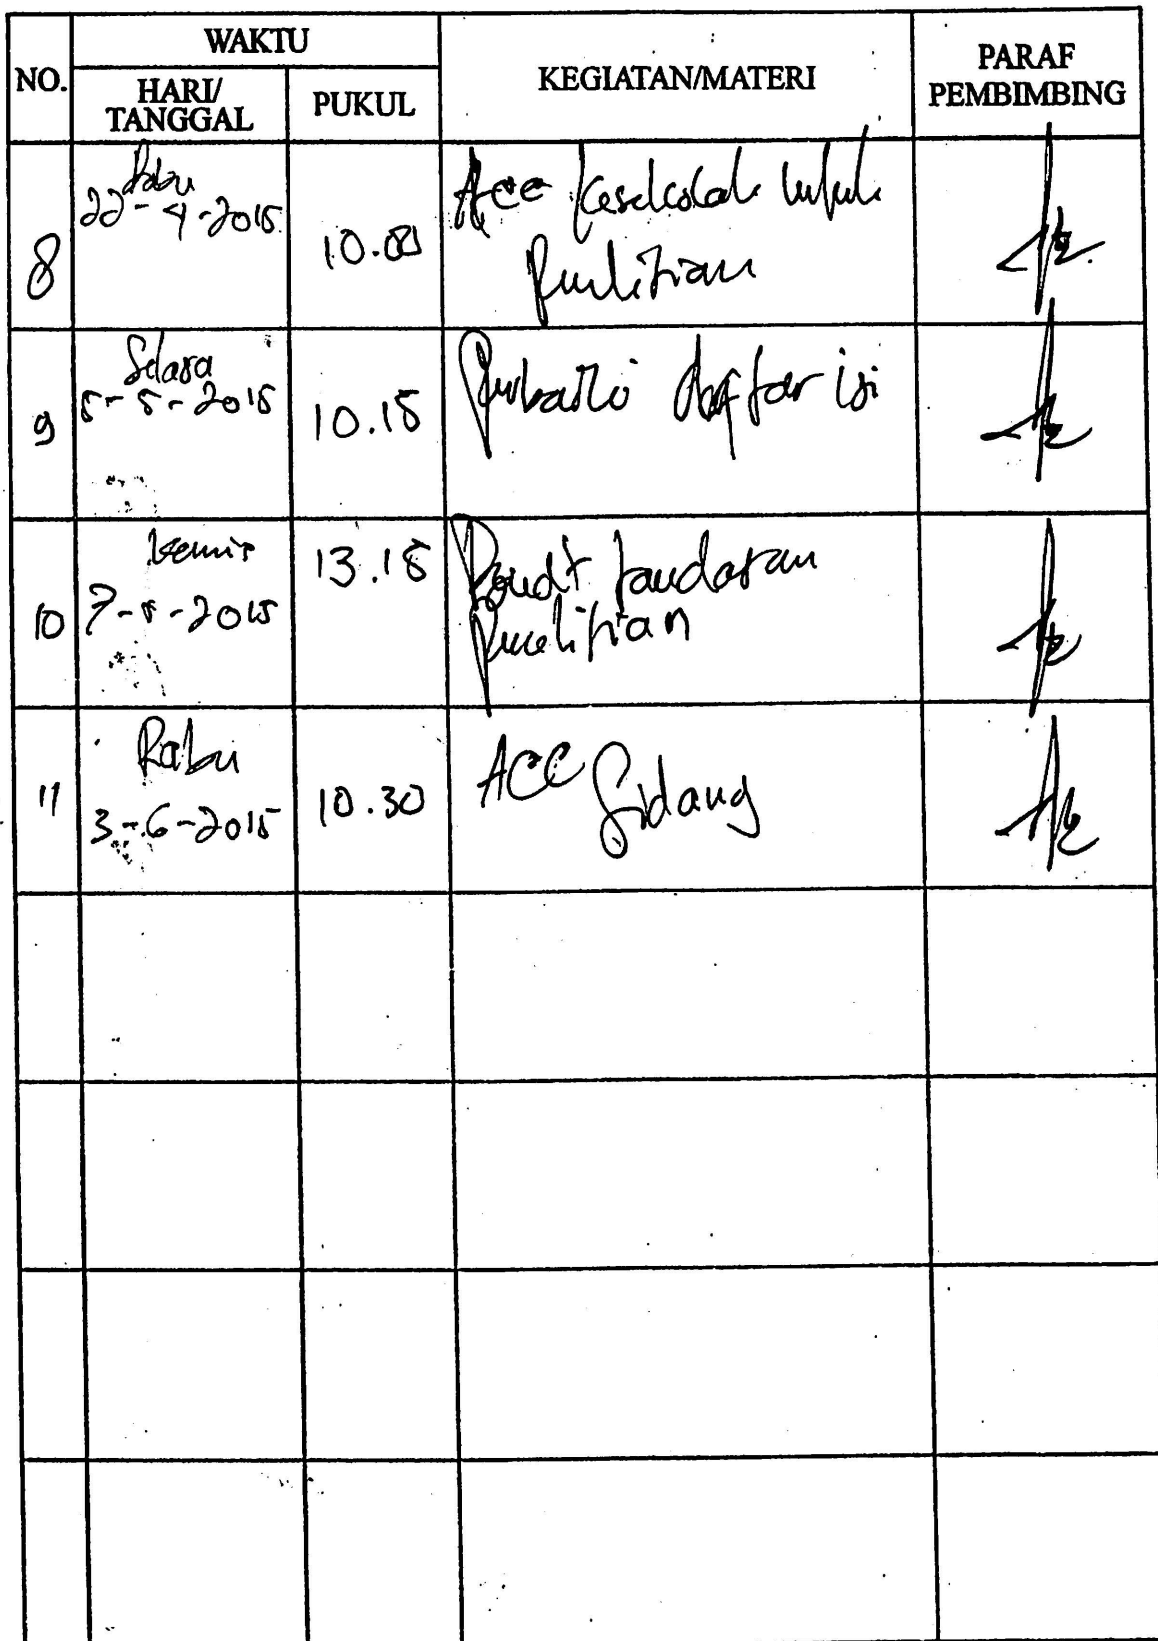 NO.
WAKTU
HARI/
TANGGAL
PUKUL
KEGIATAN/MATERI
PARAF
PEMBIMBING
8
Rabu
22-4-2015
10.00
Acc kesekolah untuk
penelitian
9
Selasa
5-5-2015
10.15
Perbaiki daftar isi
10
Kemis
7-5-2015
13.15
penelitian
11
Rabu
3-6-2015
10.30
ACC Sidang